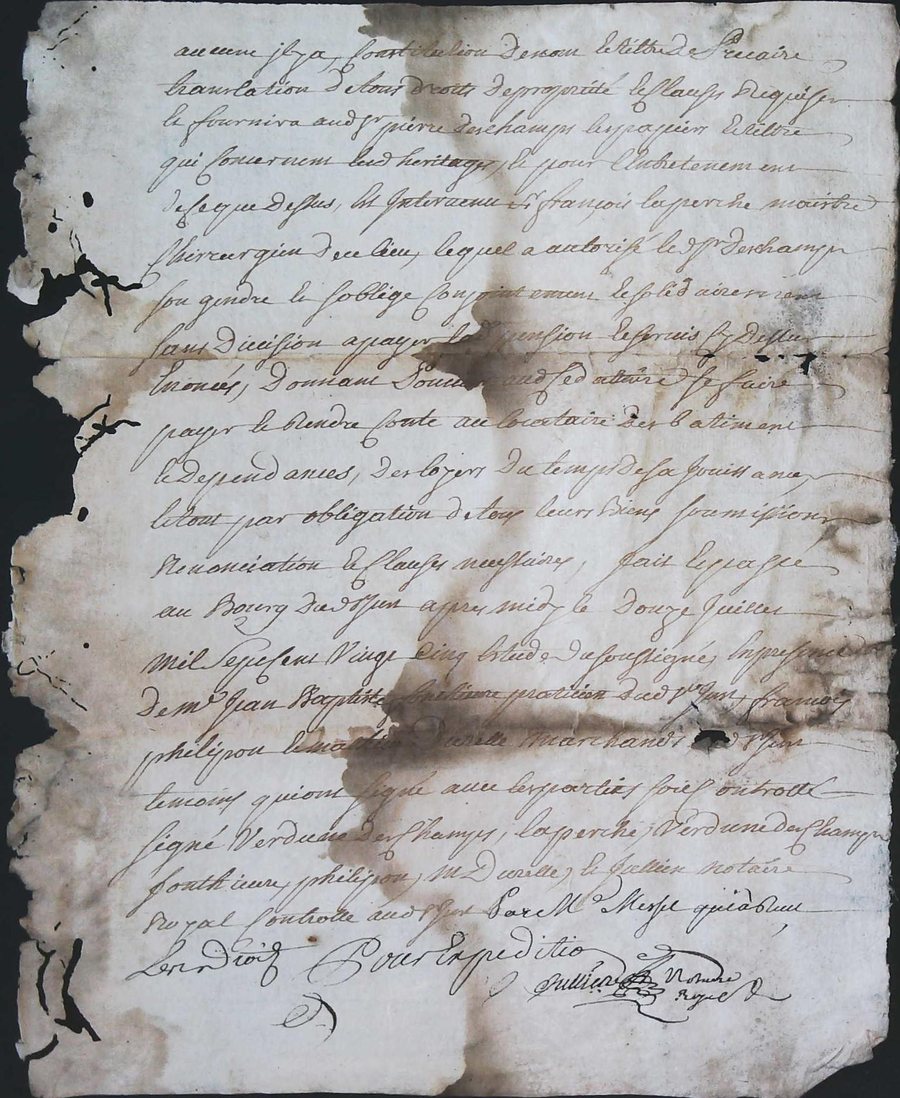 aucune il y a, Constitution de nom et tiltre de Precaire
translation de tous droits de propriété et Clauses Requises
et fournira aud sr pierre deschamps les papiers et tiltre
qui Concernent lesd heritages, et pour l'Entretenement
de ce que dessus, Est Intervenu sr françois laperche maistre
Chirurgien de ce lieu, lequel a autorisé led sr Deschamps
son gendre et s'oblige Conjointement et solidairement
sans Division a payer pension et servis Cy dessus
Enoncés, Donnant aud de se faire
payer et Rendre Conte au locataire des batiment
et Dependances, des loyers du temps de sa Jouissance
le tout par obligation de tous leurs biens soumissions
Renonciation et Clauses necessaires, fait et passé
au Bourg dud apres midy le Douze Juillet
mil sept cent Vingt Cinq Estude du soussignés En presence
de me Jean Baptiste fonthieure praticien dud françois
philipon et Durelle Marchands
temoins qui ont signé avec les parties soit Controllé
signé Verdune Deschamps, laperche, Verdune deschamps
fonthieure, philipon, M Durelle, et Jullien notaire
Royal Controllé aud Par Me qui a Receu
les droits Pour Expeditio
Jullien Notaire
Royal